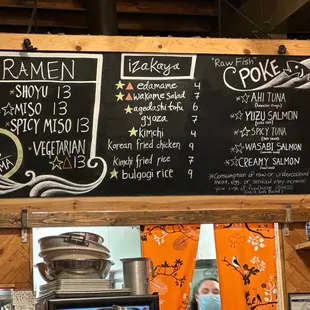 RAMEN
SHOYU 13
MISO 13
SPICY MISO 13
VEGETARIAN
13
MA
izakaya
edamame 4
wakame salad 7
agedashi tofu 6
gyoza 7
kimchi 4
Korean fried chicken 9
Kimchi fried rice 7
bulgogi rice 9
"Raw Fish"
POKE
AHI TUNA
YUZU SALMON
SPICY TUNA
WASABI SALMON
CREAMY SALMON
*Consumption of raw or undercooked
meat, egg, or seafood may increase
your risk of foodborne illness